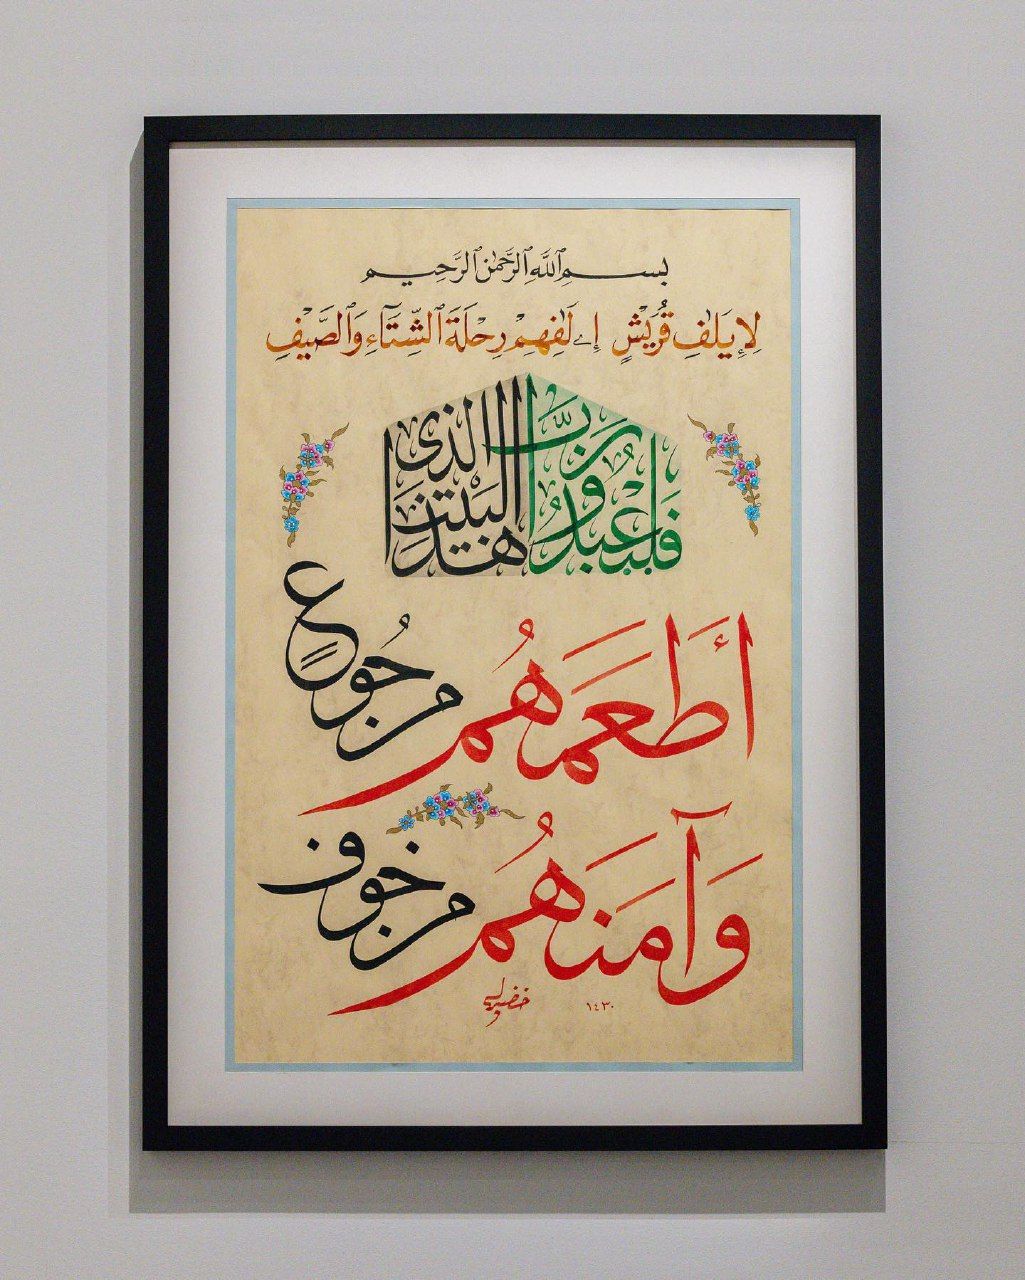 بسم ٱللَّهِ ٱلرَّحْمَٰنِ ٱلرَّحِيمِ
لِإِيلَٰفِ قُرَيْشٍ إِۦلَٰفِهِمْ رِحْلَةَ ٱلشِّتَآءِ وَٱلصَّيْفِ
فَلْيَعْبُدُوا رَبَّ هَٰذَا الْبَيْتِ الَّذِي
أَطعَمَهُم مِن جُوعٍ
وَآمَنَهُم مِن خَوف
خضير
١٤٣٠